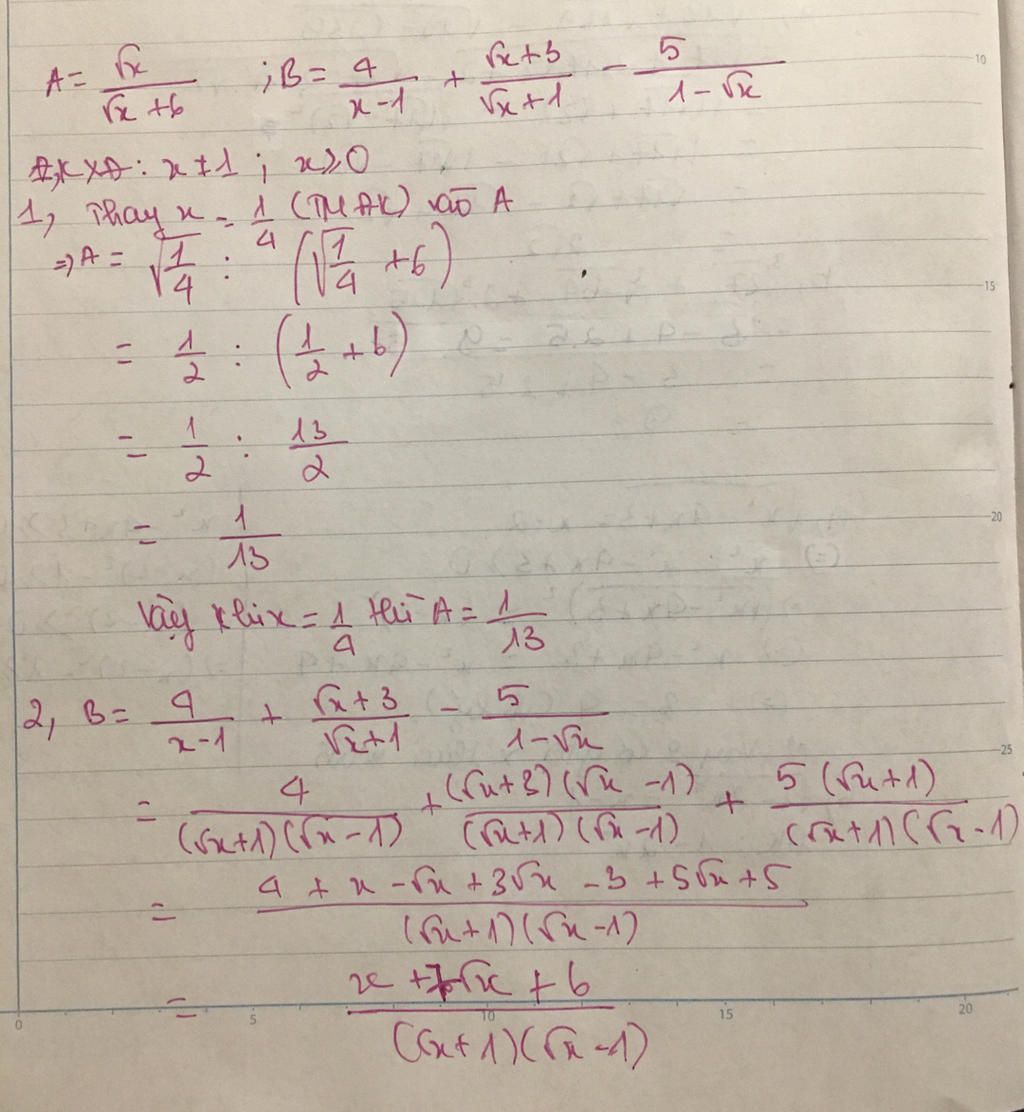 A = √x / (√x + 6) ; B = 4 / (x - 1) + (√x + 3) / (√x + 1) - 5 / (1 - √x)
ĐKXĐ: x ≠ 1 ; x ≥ 0
1, Thay x = 1/4 (TMĐK) vào A
=> A = √(1/4) : (√(1/4) + 6)
= 1/2 : (1/2 + 6)
= 1/2 : 13/2
= 1/13
Vậy khi x = 1/4 thì A = 1/13
2, B = 4 / (x - 1) + (√x + 3) / (√x + 1) - 5 / (1 - √x)
= 4 / ((√x + 1)(√x - 1)) + (√x + 3)(√x - 1) / ((√x + 1)(√x - 1)) + 5(√x + 1) / ((√x + 1)(√x - 1))
= (4 + x - √x + 3√x - 3 + 5√x + 5) / ((√x + 1)(√x - 1))
= (x + 7√x + 6) / ((√x + 1)(√x - 1))
10
15
20
25
0 5 10 15 20